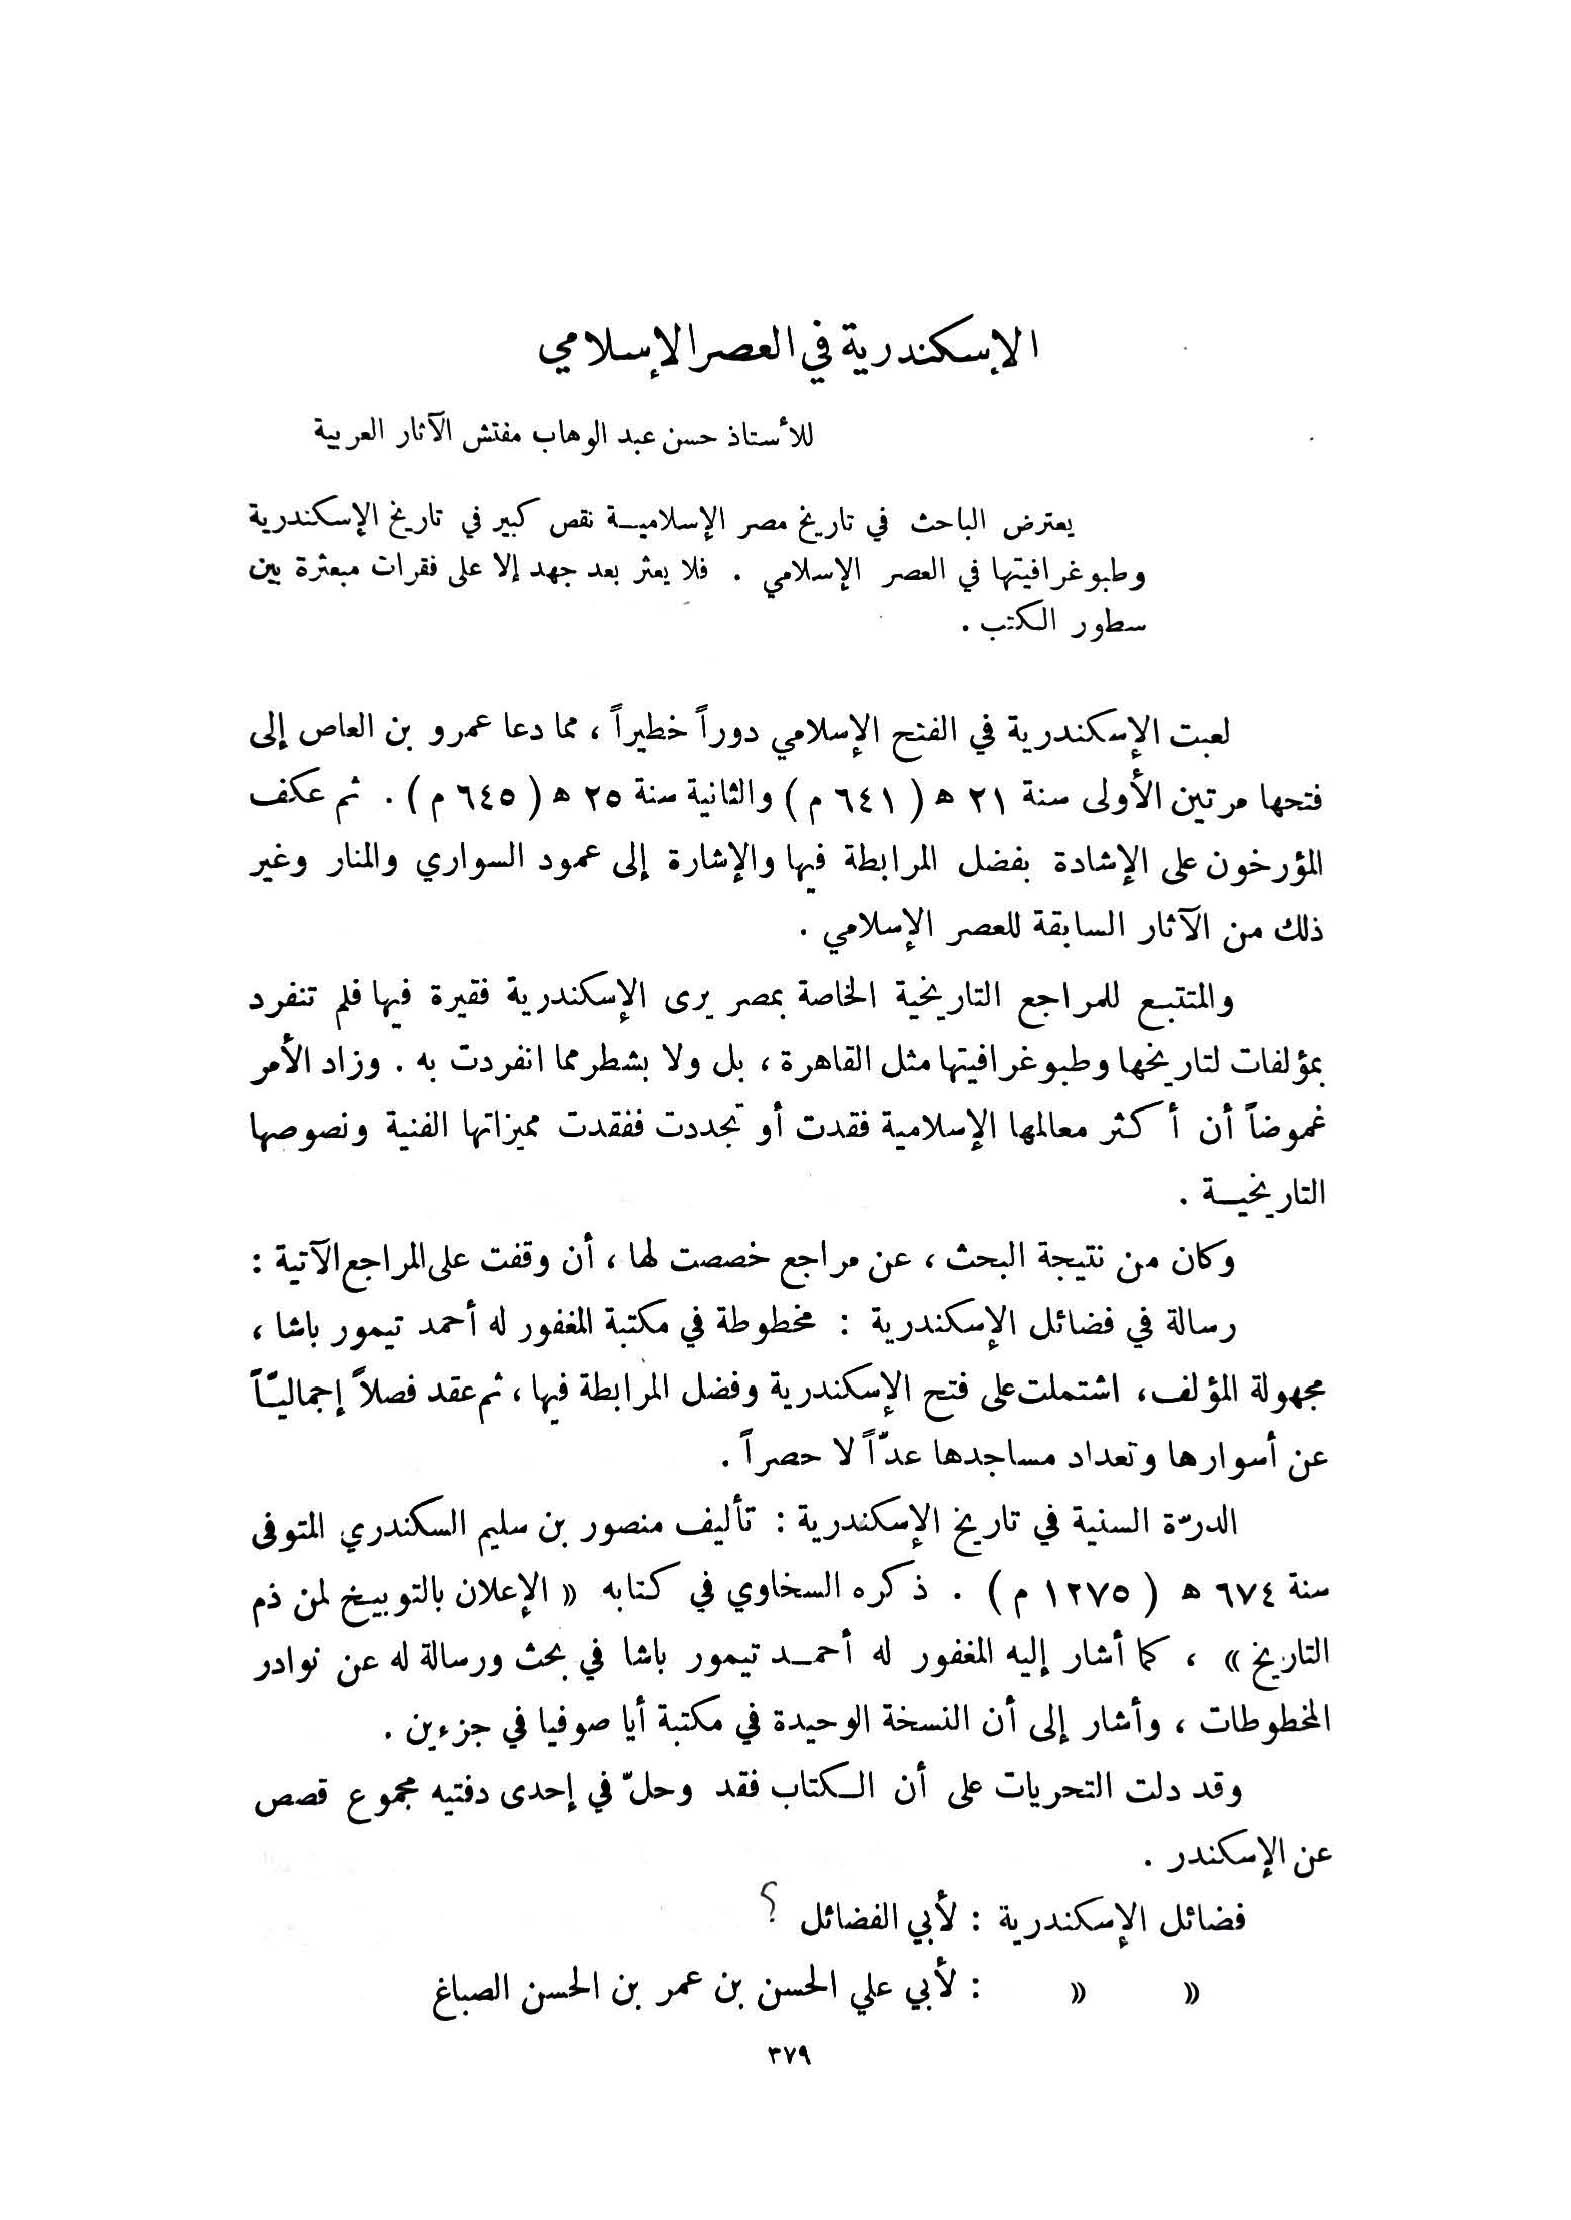 الإسكندرية في العصر الإسلامي
للأستاذ حسن عبد الوهاب مفتش الآثار العربية
يعترض الباحث في تاريخ مصر الإسلامية نقص كبير في تاريخ الإسكندرية
وطبوغرافيتها في العصر الإسلامي . فلا يعثر بعد جهد إلا على فقرات مبعثرة بين
سطور الكتب .
لعبت الإسكندرية في الفتح الإسلامي دوراً خطيراً ، مما دعا عمرو بن العاص إلى
فتحها مرتين الأولى سنة ٢١ ه ( ٦٤١ م ) والثانية سنة ٢٥ ه ( ٦٤٥ م ) . ثم عكف
المؤرخون على الإشادة بفضل المرابطة فيها والإشارة إلى عمود السواري والمنار وغير
ذلك من الآثار السابقة للعصر الإسلامي .
والمتتبع للمراجع التاريخية الخاصة بمصر يرى الإسكندرية فقيرة فيها فلم تنفرد
بمؤلفات لتاريخها وطبوغرافيتها مثل القاهرة ، بل ولا بشطر مما انفردت به . وزاد الأمر
غموضاً أن أكثر معالمها الإسلامية فقدت أو تجددت ففقدت مميزاتها الفنية ونصوصها
التاريخية .
وكان من نتيجة البحث ، عن مراجع خصصت لها ، أن وقفت على المراجع الآتية :
رسالة في فضائل الإسكندرية : مخطوطة في مكتبة المغفور له أحمد تيمور باشا ،
مجهولة المؤلف ، اشتملت على فتح الإسكندرية وفضل المرابطة فيها ، ثم عقد فصلاً إجماليّاً
عن أسوارها وتعداد مساجدها عدّاً لا حصراً .
الدرّة السنية في تاريخ الإسكندرية : تأليف منصور بن سليم السكندري المتوفى
سنة ٦٧٤ ه ( ١٢٧٥ م ) . ذكره السخاوي في كتابه « الإعلان بالتوبيخ لمن ذم
التاريخ » ، كما أشار إليه المغفور له أحمد تيمور باشا في بحث ورسالة له عن نوادر
المخطوطات ، وأشار إلى أن النسخة الوحيدة في مكتبة أيا صوفيا في جزءين .
وقد دلت التحريات على أن الكتاب فقد وحلّ في إحدى دفتيه مجموع قصص
عن الإسكندر .
فضائل الإسكندرية : لأبي الفضائل ؟
« « : لأبي علي الحسن بن عمر بن الحسن الصباغ
٣٧٩